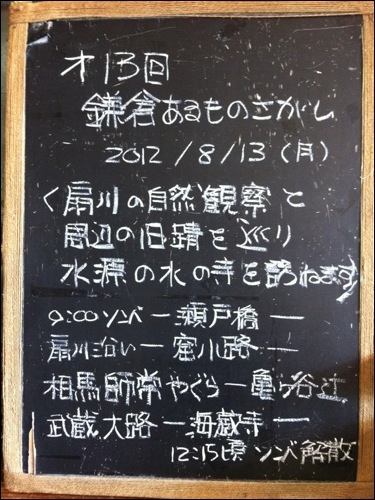 オ13回
鎌倉あるものさがし
2012/8/13(月)
く扇川の自然観察と
周辺の旧蹟を巡り
水源の水の寺を訪ねます
9:00ソンベー瀬戸橋ー
扇川沿いー窟小路ー
相馬師常やぐらー亀ヶ谷辻
武蔵大路ー海蔵寺ー
12:15頃 ソンベ解散